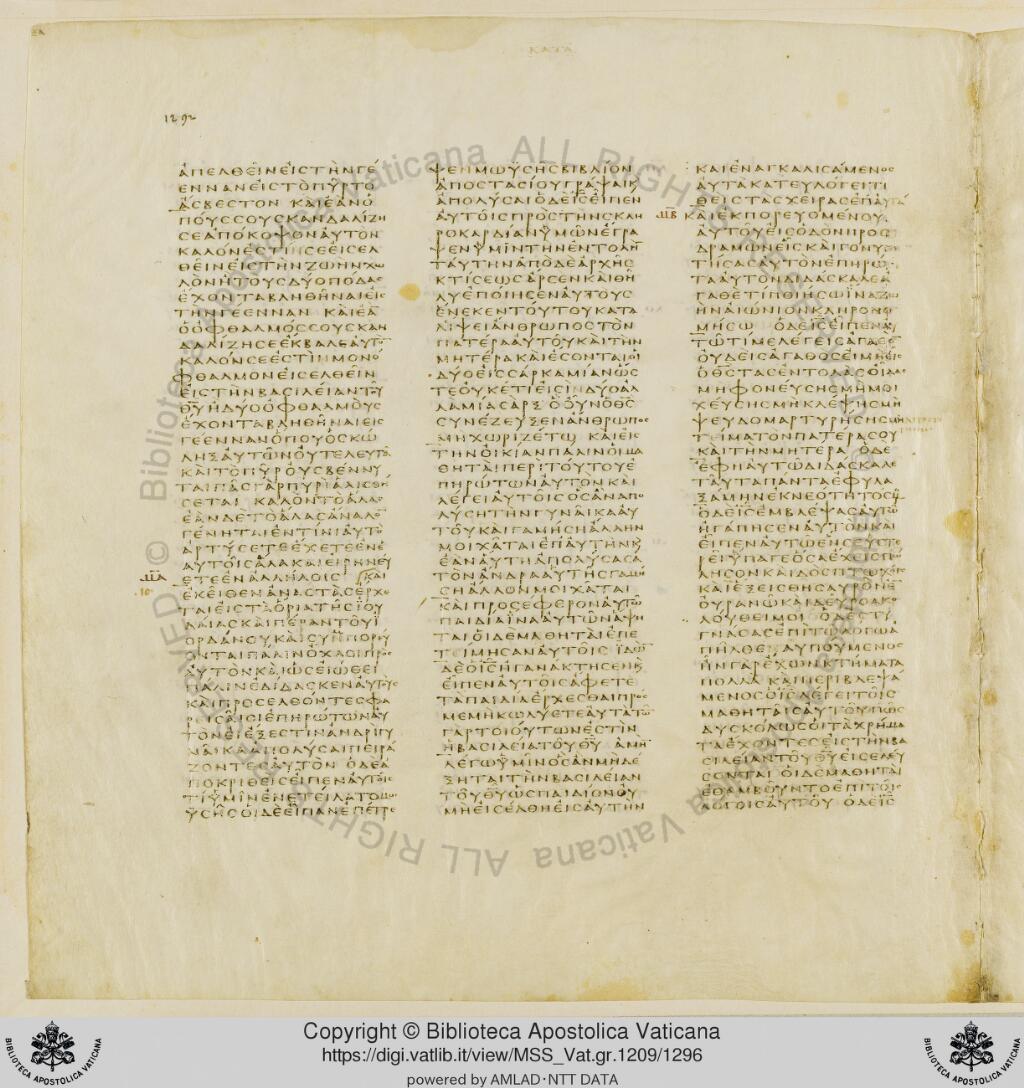 1292
ΚΑΤΑ
ΑΠΕΛΘΕΙΝΕΙϹΤΗΝΓΕ
ΕΝΝΑΝΕΙϹΤΟΠΥΡΤΟ
ΑϹΒΕϹΤΟΝ ΚΑΙΕΑΝΟ
ΠΟΥϹϹΟΥϹΚΑΝΔΑΛΙΖΗ
ϹΕΑΠΟΚΟΨΟΝΑΥΤΟΝ
ΚΑΛΟΝΕϹΤΙΝϹΕΕΙϹΕΛ
ΘΕΙΝΕΙϹΤΗΝΖΩΗΝΧΩ
ΛΟΝΗΤΟΥϹΔΥΟΠΟΔΑϹ
ΕΧΟΝΤΑΒΛΗΘΗΝΑΙΕΙϹ
ΤΗΝΓΕΕΝΝΑΝ ΚΑΙΕΑ̅
ΟΟΦΘΑΛΜΟϹϹΟΥϹΚΑΝ
ΔΑΛΙΖΗϹΕΕΚΒΑΛΕΑΥΤΟ̅
ΚΑΛΟΝϹΕΕϹΤΙΝΜΟΝΟ
ΦΘΑΛΜΟΝΕΙϹΕΛΘΕΙΝ
ΕΙϹΤΗΝΒΑϹΙΛΕΙΑΝΤΟΥ
Θ̅Υ̅ΗΔΥΟΟΦΘΑΛΜΟΥϹ
ΕΧΟΝΤΑΒΛΗΘΗΝΑΙΕΙϹ
ΓΕΕΝΝΑΝΟΠΟΥΟϹΚΩ
ΛΗΞΑΥΤΩΝΟΥΤΕΛΕΥΤΑ
ΚΑΙΤΟΠΥΡΟΥϹΒΕΝΝΥ
ΤΑΙΠΑϹΓΑΡΠΥΡΙΑΛΙϹΘΗ
ϹΕΤΑΙ ΚΑΛΟΝΤΟΑΛΑϹ
ΕΑΝΔΕΤΟΑΛΑϹΑΝΑΛΟ̅
ΓΕΝΗΤΑΙΕΝΤΙΝΙΑΥΤΟ
ΑΡΤΥϹΕΤΕΕΧΕΤΕΕΝΕ
ΑΥΤΟΙϹΑΛΑΚΑΙΕΙΡΗΝΕΥ
ΕΤΕΕΝΑΛΛΗΛΟΙϹ ΚΑΙ
ΕΚΕΙΘΕΝΑΝΑϹΤΑϹΕΡΧΕ
ΤΑΙΕΙϹΤΑΟΡΙΑΤΗϹΙΟΥ
ΔΑΙΑϹΚΑΙΠΕΡΑΝΤΟΥΙ
ΟΡΔΑΝΟΥΚΑΙϹΥΝΠΟΡΕΥ
ΟΝΤΑΙΠΑΛΙΝΟΧΛΟΙΠΡΟϹ
ΑΥΤΟΝΚΑΙΩϹΕΙΩΘΕΙ
ΠΑΛΙΝΕΔΙΔΑϹΚΕΝΑΥΤΟΥϹ
ΚΑΙΠΡΟϹΕΛΘΟΝΤΕϹΦΑ
ΡΕΙϹΑΙΟΙΕΠΗΡΩΤΩΝΑΥ
ΤΟΝΕΙΕΞΕϹΤΙΝΑΝΔΡΙΓΥ
ΝΑΙΚΑΑΠΟΛΥϹΑΙΠΕΙΡΑ
ΖΟΝΤΕϹΑΥΤΟΝ ΟΔΕΑ
ΠΟΚΡΙΘΕΙϹΕΙΠΕΝΑΥΤΟΙϹ
ΤΙΥΜΙΝΕΝΕΤΕΙΛΑΤΟΜΩ
ΥϹΗϹΟΙΔΕΕΙΠΑΝΕΠΕΤΡΕ
ΨΕΝΜΩΥϹΗϹΒΙΒΛΙΟΝ
ΑΠΟϹΤΑϹΙΟΥΓΡΑΨΑΙΚ
ΑΠΟΛΥϹΑΙΟΔΕΙ̅Ϲ̅ΕΙΠΕΝ
ΑΥΤΟΙϹΠΡΟϹΤΗΝϹΚΛΗ
ΡΟΚΑΡΔΙΑΝΥΜΩΝΕΓΡΑ
ΨΕΝΥΜΙΝΤΗΝΕΝΤΟΛΗ̅
ΤΑΥΤΗΝΑΠΟΔΕΑΡΧΗϹ
ΚΤΙϹΕΩϹΑΡϹΕΝΚΑΙΘΗ
ΛΥΕΠΟΙΗϹΕΝΑΥΤΟΥϹ
ΕΝΕΚΕΝΤΟΥΤΟΥΚΑΤΑ
ΛΙΨΕΙΑΝΘΡΩΠΟϹΤΟΝ
ΠΑΤΕΡΑΑΥΤΟΥΚΑΙΤΗΝ
ΜΗΤΕΡΑΚΑΙΕϹΟΝΤΑΙΟΙ
ΔΥΟΕΙϹϹΑΡΚΑΜΙΑΝΩϹ
ΤΕΟΥΚΕΤΙΕΙϹΙΝΔΥΟΑΛ
ΛΑΜΙΑϹΑΡΞ ΟΟΥΝΟΘ̅Ϲ̅
ϹΥΝΕΖΕΥΞΕΝΑΝΘΡΩΠΟϹ
ΜΗΧΩΡΙΖΕΤΩ ΚΑΙΕΙϹ
ΤΗΝΟΙΚΙΑΝΠΑΛΙΝΟΙΜΑ
ΘΗΤΑΙΠΕΡΙΤΟΥΤΟΥΕ
ΠΗΡΩΤΩΝΑΥΤΟΝΚΑΙ
ΛΕΓΕΙΑΥΤΟΙϹΟϹΑΝΑΠΟ
ΛΥϹΗΤΗΝΓΥΝΑΙΚΑΑΥ
ΤΟΥΚΑΙΓΑΜΗϹΗΑΛΛΗΝ
ΜΟΙΧΑΤΑΙΕΠΑΥΤΗΝΚ
ΕΑΝΑΥΤΗΑΠΟΛΥϹΑϹΑ
ΤΟΝΑΝΔΡΑΑΥΤΗϹΓΑΜΗ
ϹΗΑΛΛΟΝΜΟΙΧΑΤΑΙ
ΚΑΙΠΡΟϹΕΦΕΡΟΝΑΥΤΩ
ΠΑΙΔΙΑΙΝΑΑΥΤΩΝΑΨΗ
ΤΑΙΟΙΔΕΜΑΘΗΤΑΙΕΠΕ
ΤΕΙΜΗϹΑΝΑΥΤΟΙϹ ΙΔΩ̅
ΔΕΟΙ̅Ϲ̅ΗΓΑΝΑΚΤΗϹΕΝΚ
ΕΙΠΕΝΑΥΤΟΙϹΑΦΕΤΕ
ΤΑΠΑΙΔΙΑΕΡΧΕϹΘΑΙΠΡΟϹ
ΜΕΜΗΚΩΛΥΕΤΕΑΥΤΑΤΩ̅
ΓΑΡΤΟΙΟΥΤΩΝΕϹΤΙΝ
ΗΒΑϹΙΛΕΙΑΤΟΥΘ̅Υ̅ ΑΜΗ̅
ΛΕΓΩΥΜΙΝΟϹΑΝΜΗΔΕ
ΞΗΤΑΙΤΗΝΒΑϹΙΛΕΙΑΝ
ΤΟΥΘ̅Υ̅ΩϹΠΑΙΔΙΟΝΟΥ
ΜΗΕΙϹΕΛΘΗΕΙϹΑΥΤΗΝ
ΚΑΙΕΝΑΓΚΑΛΙϹΑΜΕΝΟϹ
ΑΥΤΑΚΑΤΕΥΛΟΓΕΙΤΙ
ΘΕΙϹΤΑϹΧΕΙΡΑϹΕΠΑΥΤΑ
ΚΑΙΕΚΠΟΡΕΥΟΜΕΝΟΥ
ΑΥΤΟΥΕΙϹΟΔΟΝΠΡΟϹ
ΔΡΑΜΩΝΕΙϹΚΑΙΓΟΝΥΠΕ
ΤΗϹΑϹΑΥΤΟΝΕΠΗΡΩ
ΤΑΑΥΤΟΝΔΙΔΑϹΚΑΛΕΑ
ΓΑΘΕΤΙΠΟΙΗϹΩΙΝΑΖΩ
ΗΝΑΙΩΝΙΟΝΚΛΗΡΟΝΟ
ΜΗϹΩ ΟΔΕΙ̅Ϲ̅ΕΙΠΕΝΑΥ
ΤΩΤΙΜΕΛΕΓΕΙϹΑΓΑΘΟ̅
ΟΥΔΕΙϹΑΓΑΘΟϹΕΙΜΗΕΙϹ
ΟΘ̅Ϲ̅ΤΑϹΕΝΤΟΛΑϹΟΙΔΑϹ
ΜΗΦΟΝΕΥϹΗϹΜΗΜΟΙ
ΧΕΥϹΗϹΜΗΚΛΕΨΗϹΜΗ
ΨΕΥΔΟΜΑΡΤΥΡΗϹΗϹ
ΤΕΙΜΑΤΟΝΠΑΤΕΡΑϹΟΥ
ΚΑΙΤΗΝΜΗΤΕΡΑ ΟΔΕ
ΕΦΗΑΥΤΩΔΙΔΑϹΚΑΛΕ
ΤΑΥΤΑΠΑΝΤΑΕΦΥΛΑ
ΞΑΜΗΝΕΚΝΕΟΤΗΤΟϹΜΟΥ
ΟΔΕΙ̅Ϲ̅ΕΜΒΛΕΨΑϹΑΥΤΩ
ΗΓΑΠΗϹΕΝΑΥΤΟΝΚΑΙ
ΕΙΠΕΝΑΥΤΩΕΝϹΕΥϹΤΕ
ΡΕΙΥΠΑΓΕΟϹΑΕΧΕΙϹΠΩ
ΛΗϹΟΝΚΑΙΔΟϹΠΤΩΧΟΙϹ
ΚΑΙΕΞΕΙϹΘΗϹΑΥΡΟΝΕ̅
ΟΥΡΑΝΩΚΑΙΔΕΥΡΟΑΚΟ
ΛΟΥΘΕΙΜΟΙ ΟΔΕϹΤΥ
ΓΝΑϹΑϹΕΠΙΤΩΛΟΓΩΑ
ΠΗΛΘΕΛΥΠΟΥΜΕΝΟϹ
ΗΝΓΑΡΕΧΩΝΚΤΗΜΑΤΑ
ΠΟΛΛΑ ΚΑΙΠΕΡΙΒΛΕΨΑ
ΜΕΝΟϹΟΙ̅Ϲ̅ΛΕΓΕΙΤΟΙϹ
ΜΑΘΗΤΑΙϹΑΥΤΟΥΠΩϹ
ΔΥϹΚΟΛΩϹΟΙΤΑΧΡΗΜΑ
ΤΑΕΧΟΝΤΕϹΕΙϹΤΗΝΒΑ
ϹΙΛΕΙΑΝΤΟΥΘ̅Υ̅ΕΙϹΕΛΕΥ
ϹΟΝΤΑΙ ΟΙΔΕΜΑΘΗΤΑΙ
ΕΘΑΜΒΟΥΝΤΟΕΠΙΤΟΙϹ
ΛΟΓΟΙϹΑΥΤΟΥ ΟΔΕΙ̅Ϲ̅
© Biblioteca Apostolica Vaticana ALL RIGHTS RESERVED
Copyright © Biblioteca Apostolica Vaticana
https://digi.vatlib.it/view/MSS_Vat.gr.1209/1296
powered by AMLAD·NTT DATA
BIBLIOTECA APOSTOLICA VATICANA
BIBLIOTECA APOSTOLICA VATICANA